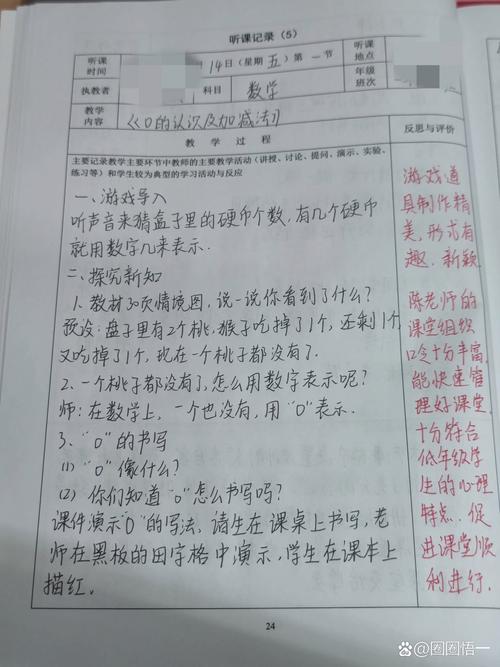 听课记录（5）
听课时间
14日(星期五)第一节
听课地点
执教者
科目
数学
年级班次
教学内容
《0的认识及加减法》
教 学 过 程
反思与评价
主要记录教学主要环节中教师的主要教学活动（讲授、讨论、提问、演示、实验、
练习等）和学生较为典型的学习活动与反应
一、游戏导入
听声音来猜盒子里的硬币个数，有几个硬币
就用数字几来表示.
二、探究新知
1、教材30页情境图，说一说你看到了什么？
预设：盘子里有2个桃，猴子吃掉了1个，还剩1个，
又吃掉了1个，现在一个桃子都没有了.
2、一个桃子都没有了，怎么用数字表示呢？
师：在数学上，一个也没有，用“0”表示.
3、“0”的书写
(1) “0”像什么？
(2) 你们知道“0”怎么书写吗？
课件演示“0”的写法，请生在课桌上书写，老
师在黑板的田字格中演示，学生在课本上
描红.
游戏道
具制作精
美，形式有
趣、新颖
陈老师的
课堂组织
口令十分丰富，
能快速管
理好课堂
十分符合
低年级学
生的心理
特点，促
进课堂顺
利进行.
24
@圈圈悟一